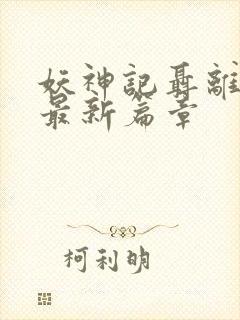 妖神記聶離
最新篇章
柯利明